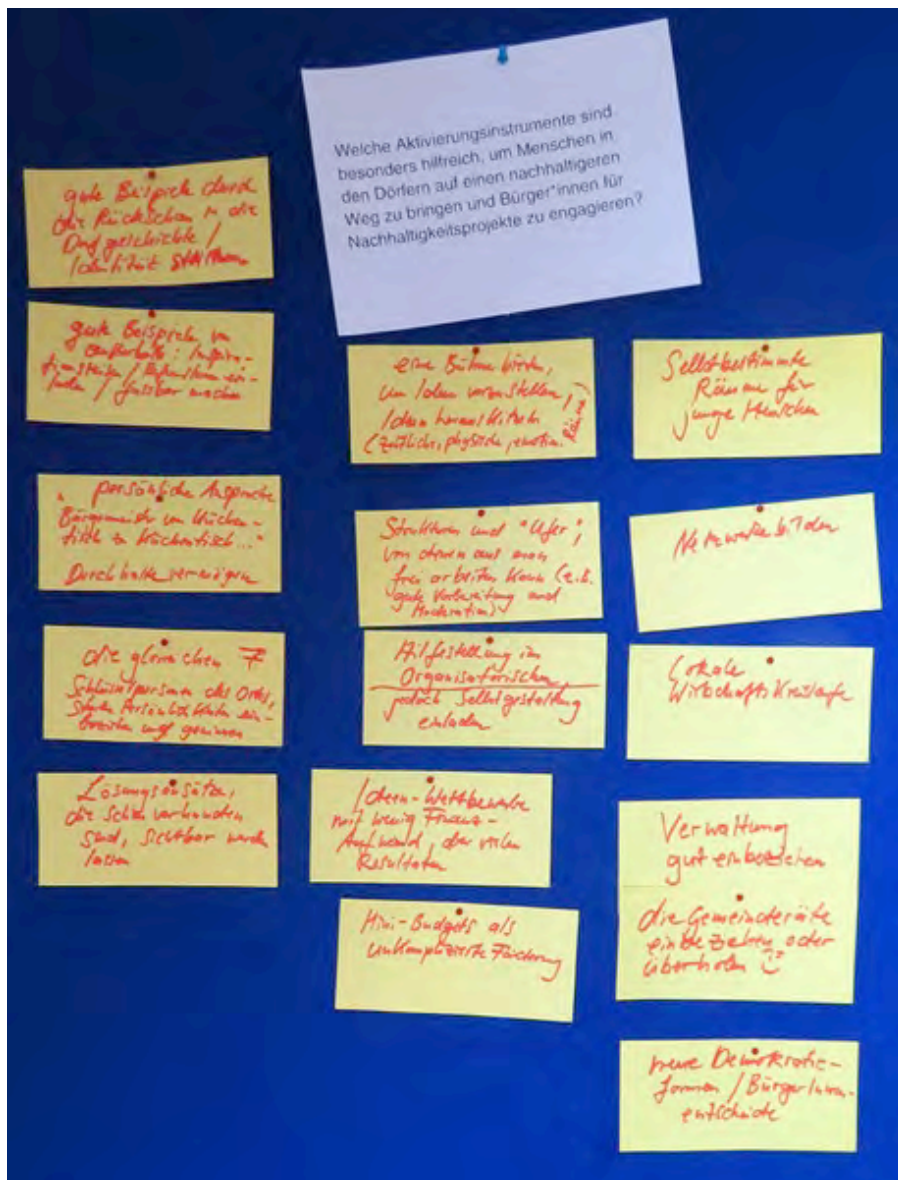 Welche Aktivierungsinstrumente sind
besonders hilfreich, um Menschen in
den Dörfern auf einen nachhaltigeren
Weg zu bringen und Bürger*innen für
Nachhaltigkeitsprojekte zu engagieren?
gute Beispiele durch
die Rückschau in die
Dorfgeschichte /
Identität
gute Beispiele von
außerhalb: Inspira-
/ ein-
laden / fassbar machen
persönliche Ansprache
"Bürgermeister von Küchen-
tisch zu Küchentisch..."
Durchhaltevermögen
die glorreichen 7
Schlüsselpersonen des Ortes,
starke Persönlichkeiten ein-
und gewinnen
Lösungsansätze,
die schon vorhanden
sind, sichtbar werden
lassen
eine Bühne bieten,
um Ideen vorzustellen,
Ideen herauskitzeln
(zeitliche, physische, emotion. Räume)
Strukturen und "Ufer",
von denen aus man
frei arbeiten kann (z.B.
gute Vorbereitung und
Moderation)
Hilfestellung im
Organisatorischen,
jedoch Selbstgestaltung
einladen
Ideen-Wettbewerbe
mit wenig Finanz-
Aufwand, aber vielen
Resultaten
Mini-Budgets als
unkomplizierte Förderung
Selbstbestimmte
Räume für
junge Menschen
Netzwerke bilden
Lokale
Wirtschaftskreisläufe
Verwaltung
gut einbeziehen
die Gemeinderäte
einbeziehen oder
überholen
neue Demokratie-
formen / BürgerInnen-
entscheide